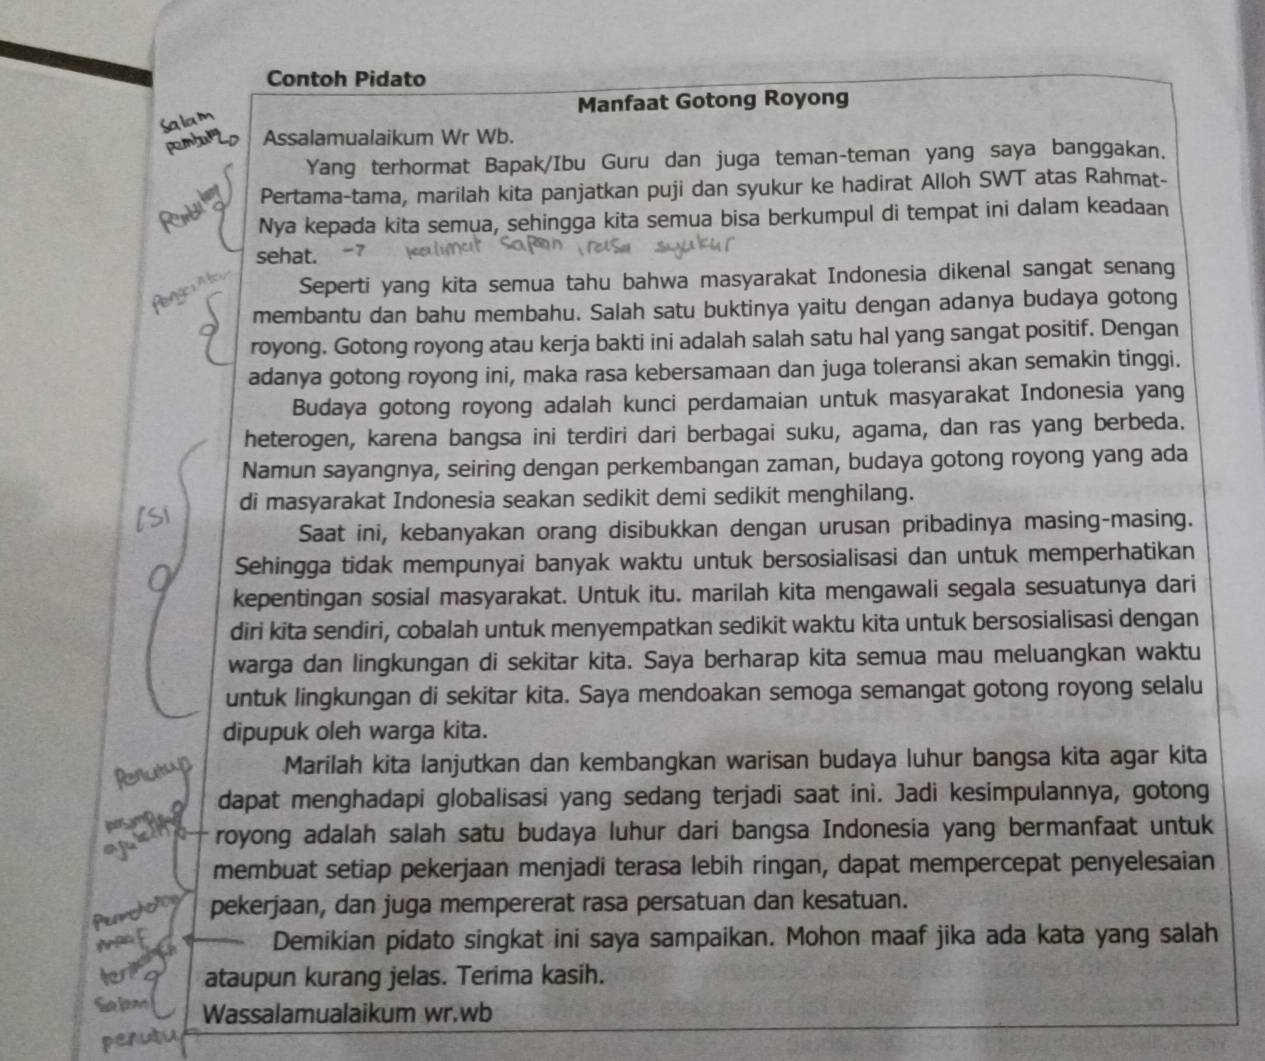 Contoh Pidato
Manfaat Gotong Royong
Salam
pembuka
Assalamualaikum Wr Wb.
Yang terhormat Bapak/Ibu Guru dan juga teman-teman yang saya banggakan.
Pertama-tama, marilah kita panjatkan puji dan syukur ke hadirat Alloh SWT atas Rahmat-
Nya kepada kita semua, sehingga kita semua bisa berkumpul di tempat ini dalam keadaan
sehat. kalimat sapaan, rasa syukur
Seperti yang kita semua tahu bahwa masyarakat Indonesia dikenal sangat senang
membantu dan bahu membahu. Salah satu buktinya yaitu dengan adanya budaya gotong
royong. Gotong royong atau kerja bakti ini adalah salah satu hal yang sangat positif. Dengan
adanya gotong royong ini, maka rasa kebersamaan dan juga toleransi akan semakin tinggi.
Budaya gotong royong adalah kunci perdamaian untuk masyarakat Indonesia yang
heterogen, karena bangsa ini terdiri dari berbagai suku, agama, dan ras yang berbeda.
Namun sayangnya, seiring dengan perkembangan zaman, budaya gotong royong yang ada
di masyarakat Indonesia seakan sedikit demi sedikit menghilang.
isi
Saat ini, kebanyakan orang disibukkan dengan urusan pribadinya masing-masing.
Sehingga tidak mempunyai banyak waktu untuk bersosialisasi dan untuk memperhatikan
kepentingan sosial masyarakat. Untuk itu. marilah kita mengawali segala sesuatunya dari
diri kita sendiri, cobalah untuk menyempatkan sedikit waktu kita untuk bersosialisasi dengan
warga dan lingkungan di sekitar kita. Saya berharap kita semua mau meluangkan waktu
untuk lingkungan di sekitar kita. Saya mendoakan semoga semangat gotong royong selalu
dipupuk oleh warga kita.
Penutup
Marilah kita lanjutkan dan kembangkan warisan budaya luhur bangsa kita agar kita
dapat menghadapi globalisasi yang sedang terjadi saat ini. Jadi kesimpulannya, gotong
royong adalah salah satu budaya luhur dari bangsa Indonesia yang bermanfaat untuk
membuat setiap pekerjaan menjadi terasa lebih ringan, dapat mempercepat penyelesaian
pekerjaan, dan juga mempererat rasa persatuan dan kesatuan.
maaf
Demikian pidato singkat ini saya sampaikan. Mohon maaf jika ada kata yang salah
ataupun kurang jelas. Terima kasih.
Salam
Wassalamualaikum wr.wb
penutup